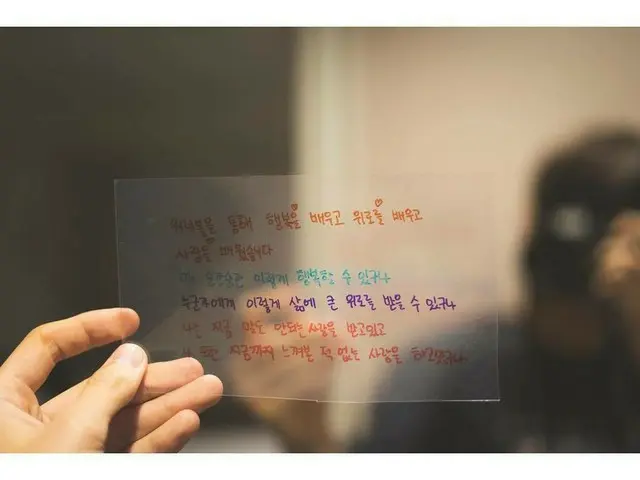 워너블을 통해 행복을 배우고 위로를 배우고
사랑을 배웠습니다
모든순간 이렇게 행복할 수 있구나
누군가에게 이렇게 삶에 큰 위로를 받을 수 있구나
나는 지금 말도 안되는 사랑을 받고있고
나 또한 지금까지 느껴본 적 없는 사랑을 하고있구나